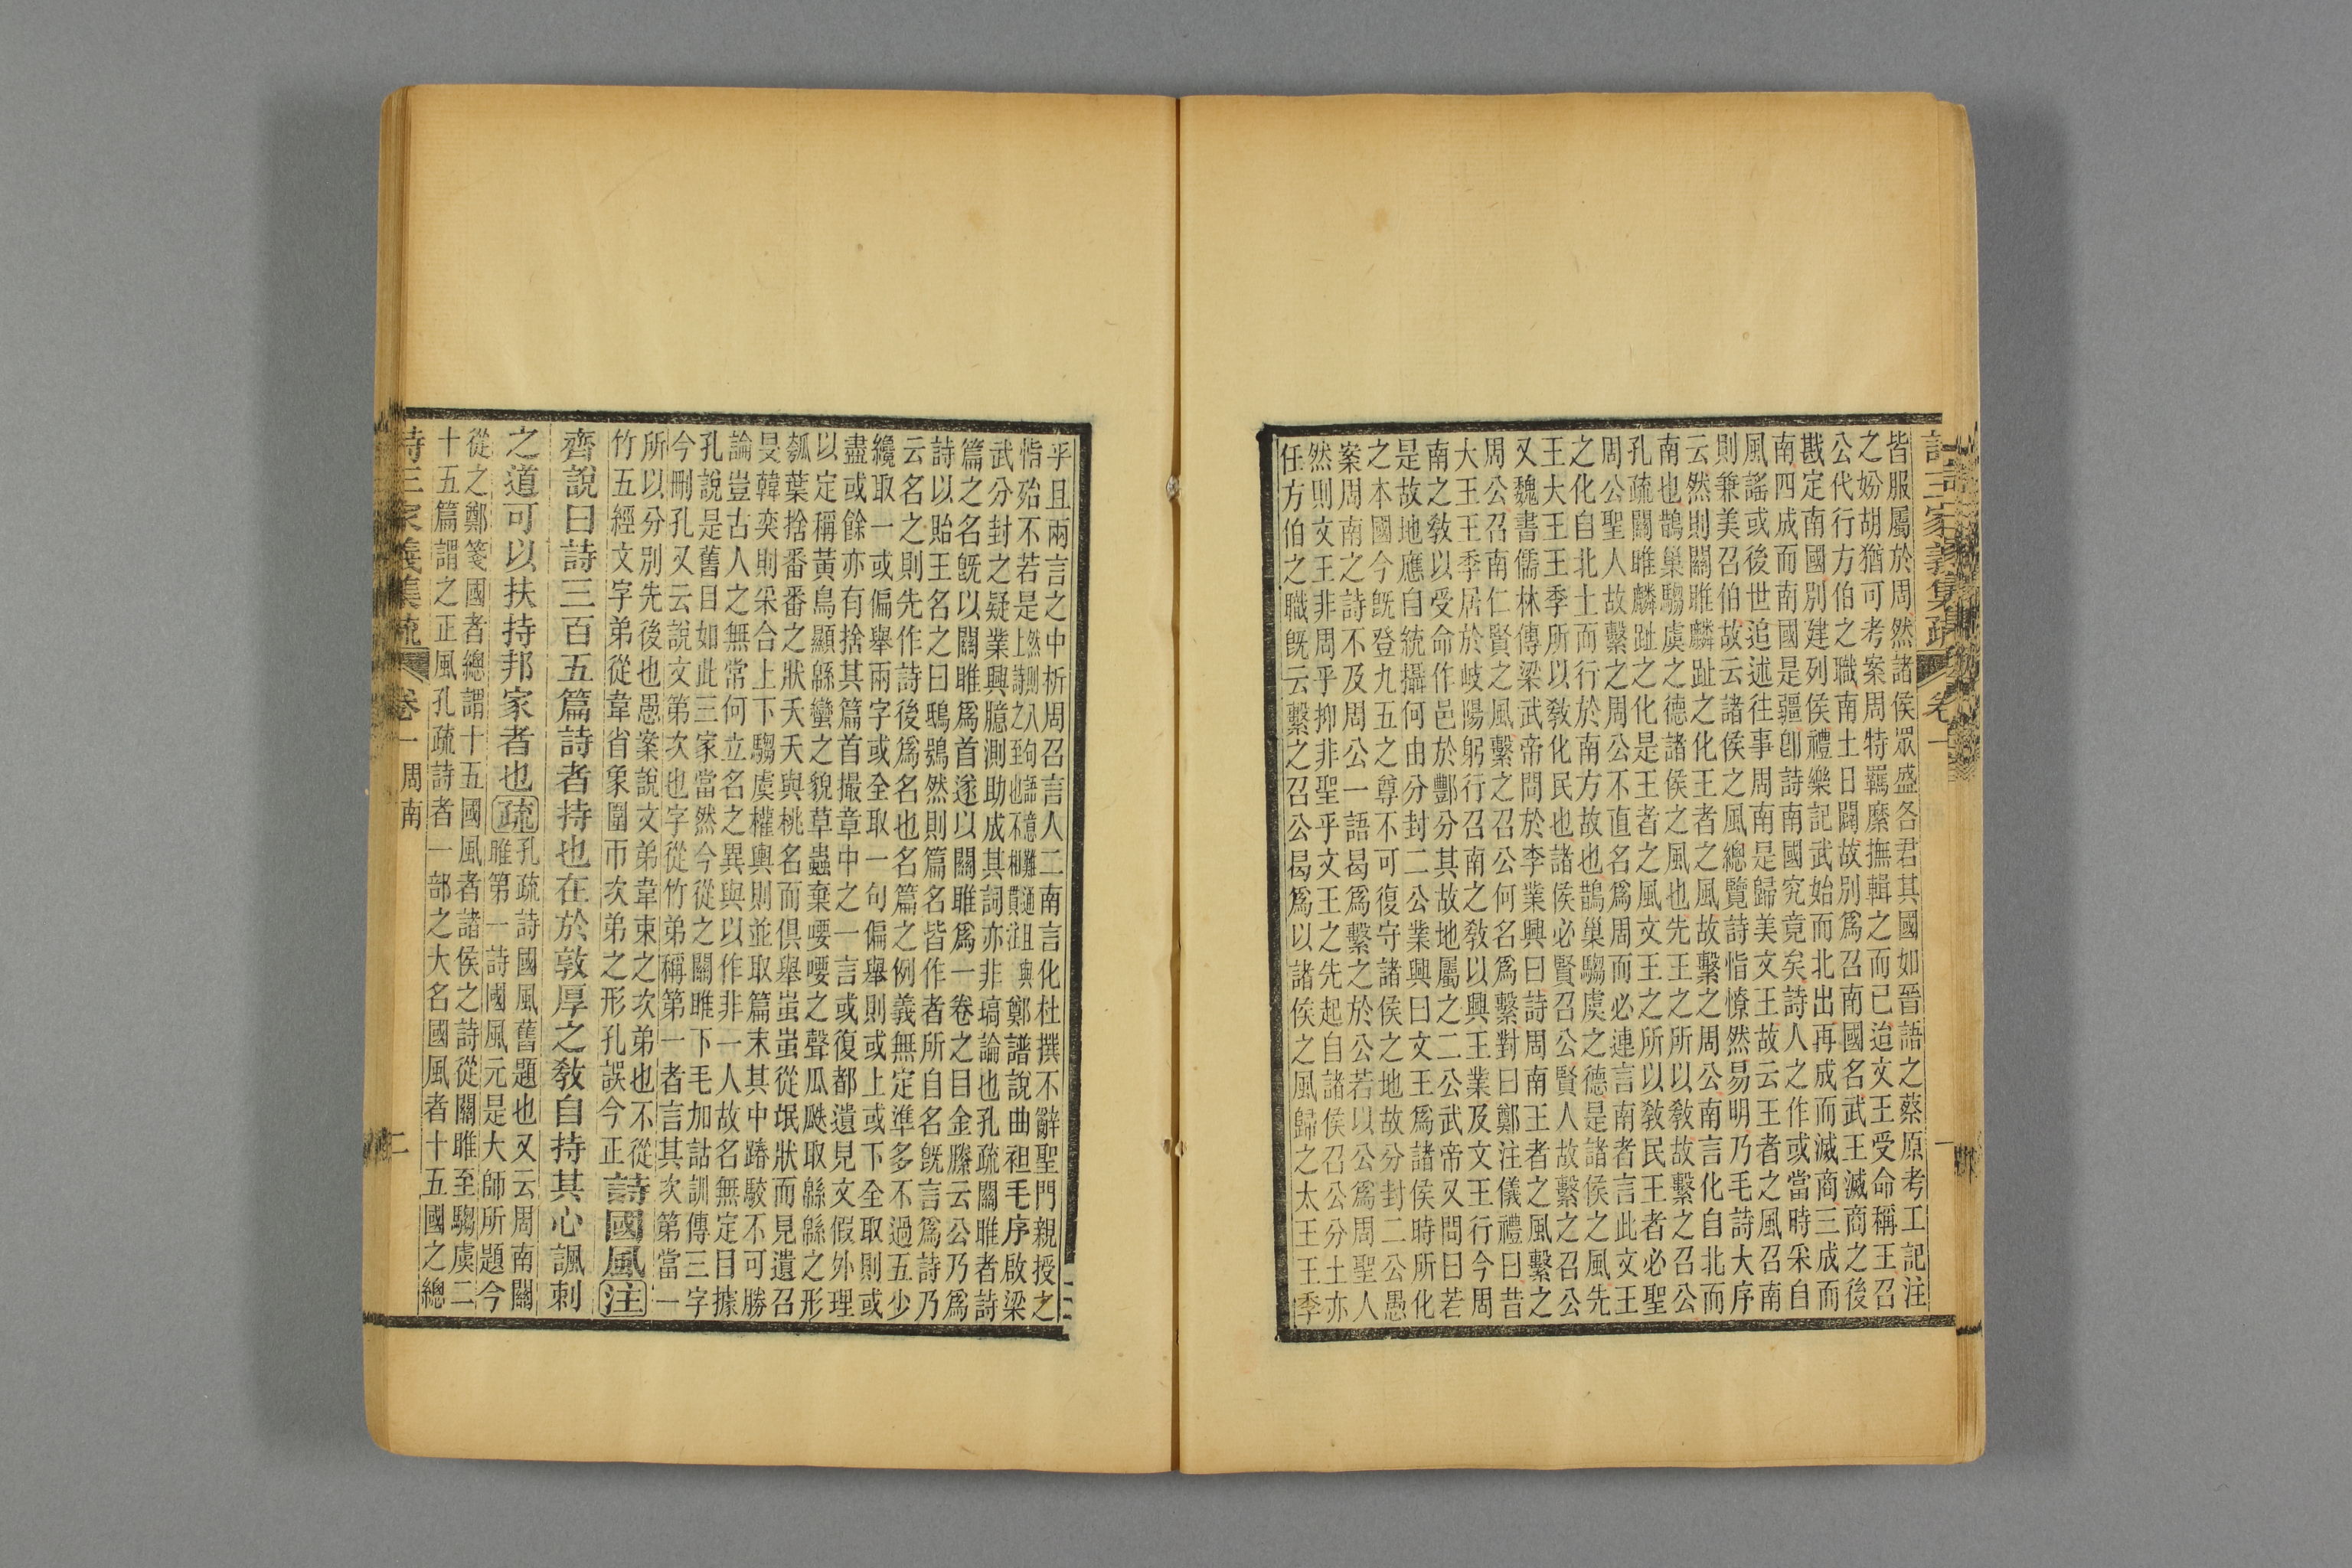 皆服屬於周然諸侯眾盛各君其國如晉語之蔡原考工記注
之妢胡猶可考案周特羈縻撫輯之而已迨文王受命稱王召
公代行方伯之職南土日闢故別爲召南國名武王滅商之後
戡定南國別建列侯禮樂記武始而北出再成而滅商三成而
南四成而南國是疆卽詩南國究竟矣詩人之作或當時采自
風謠或後世追述往事周南是歸美文王故云王者之風召南
則兼美召伯故云諸侯之風總覽詩恉憭然易明乃毛詩大序
云然則關雎麟趾之化王者之風故繫之周公南言化自北而
南也鵲巢騶虞之德諸侯之風也先王之所以敎故繫之召公
孔疏關雎麟趾之化是王者之風文王之所以敎民王者必聖
周公聖人故繫之周公不直名爲周而必連言南者言此文王
之化自北土而行於南方故也鵲巢騶虞之德是諸侯之風先
王大王王季所以敎化民也諸侯必賢召公賢人故繫之召公
又魏書儒林傳梁武帝問於李業興曰詩周南王者之風繫之
周公召南仁賢之風繫之召公何名爲繫對曰鄭注儀禮曰昔
大王王季居於岐陽躬行召南之敎以興王業及文王行今周
南之敎以受命作邑於酆分其故地屬之二公武帝又問曰若
是故地應自統攝何由分封二公業興曰文王爲諸侯時所化
之本國今旣登九五之尊不可復守諸侯之地故分封二公愚
案周南之詩不及周公一語曷爲繫之於公若以公爲周聖人
然則文王非周乎抑非聖乎文王之先起自諸侯召公分土亦
任方伯之職旣云繫之召公曷爲以諸侯之風歸之太王王季
乎且兩言之中析周召言人二南言化杜撰不辭聖門親授之
恉殆不若是然則八句語意難通且與上詩之至也不相貫注鄭譜說曲袒毛序啟梁
武分封之疑業興臆測助成其詞亦非塙論也孔疏關雎者詩
篇之名旣以關雎爲首遂以關雎爲一卷之目金縢云公乃爲
詩以貽王名之曰鴟鴞然則篇名皆作者所自名旣言爲詩乃
云名之則先作詩後爲名也名篇之例義無定準多不過五少
纔取一或偏舉兩字或全取一句偏舉則或上或下全取則或
盡或餘亦有捨其篇首撮章中之一言或復都遺見文假外理
以定稱黃鳥顯緜蠻之貌草蟲棄喓喓之聲瓜瓞取緜緜之形
瓠葉捨番番之狀夭夭與桃名而俱舉蚩蚩從氓狀而見遺召
旻韓奕則采合上下騶虞權輿則並取篇末其中踳駁不可勝
論豈古人之無常何立名之異與以作非一人故名無定目據
孔說是舊日如此三家當然今從之關雎下毛加詁訓傳三字
今刪孔又云說文第次也字從竹弟稱第一者言其次第當一
所以分別先後也愚案說文弟韋束之次弟也不從
竹五經文字弟從韋省象圍帀次弟之形孔誤今正
詩國風注
齊說曰詩三百五篇詩者持也在於敦厚之敎自持其心諷刺
之道可以扶持邦家者也疏
孔疏詩國風舊題也又云周南關
雎第一詩國風元是大師所題今
從之鄭箋國者總謂十五國風者諸侯之詩從關雎至騶虞二
十五篇謂之正風孔疏詩者一部之大名國風者十五國之總
詩三家義集疏 卷一 周南 二